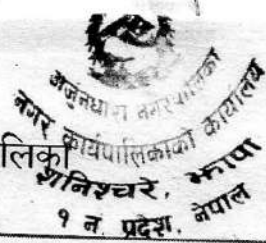 अर्जुनधारा नगरपालिका
नगर कार्यपालिकाको कार्यालय
लिका
शनिश्चरे, झापा
१ नं. प्रदेश, नेपाल